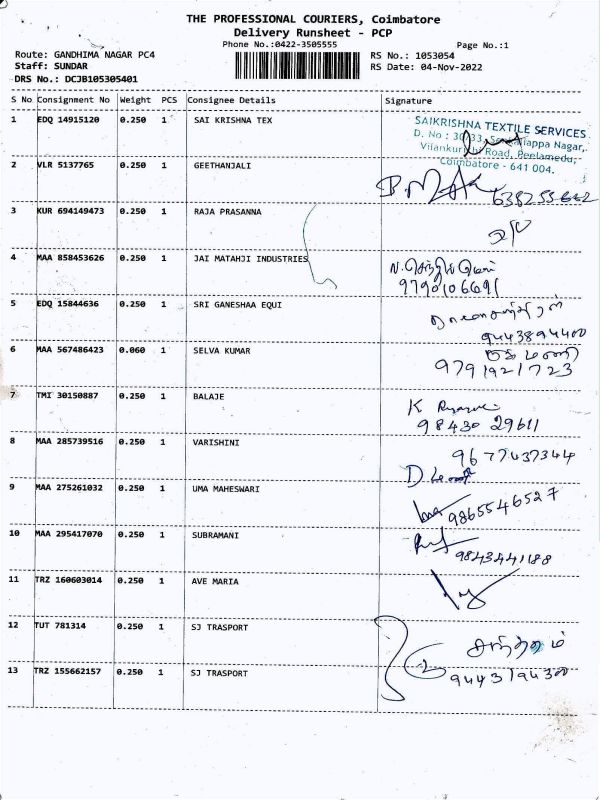 THE PROFESSIONAL COURIERS, Coimbatore
Delivery Runsheet - PCP
Phone No.:0422-3505555
Page No.:1
Route: GANDHIMA NAGAR PC4
RS No.: 1053054
Staff: SUNDAR
RS Date: 04-Nov-2022
DRS No.: DCJB105305401
S No Consignment No Weight PCS Consignee Details Signature
1 EDQ 14915120 0.250 1 SAI KRISHNA TEX
SAIKRISHNA TEXTILE SERVICES
D. No : 30/33, Nagar,
Vilankurichi Road, Peelamedu,
Coimbatore - 641 004.
2 VLR 5137765 0.250 1 GEETHANJALI
3 KUR 694149473 0.250 1 RAJA PRASANNA
4 MAA 858453626 0.250 1 JAI MATAHJI INDUSTRIES
9790106691
5 EDQ 15844636 0.250 1 SRI GANESHAA EQUI
9443894400
6 MAA 567486423 0.060 1 SELVA KUMAR
9791921723
7 TMI 30150887 0.250 1 BALAJE
K
98430 29611
8 MAA 285739516 0.250 1 VARISHINI
9677437344
9 MAA 275261032 0.250 1 UMA MAHESWARI
9865546527
10 MAA 295417070 0.250 1 SUBRAMANI
9843441188
11 TRZ 160603014 0.250 1 AVE MARIA
12 TUT 781314 0.250 1 SJ TRASPORT
13 TRZ 155662157 0.250 1 SJ TRASPORT
9443194300